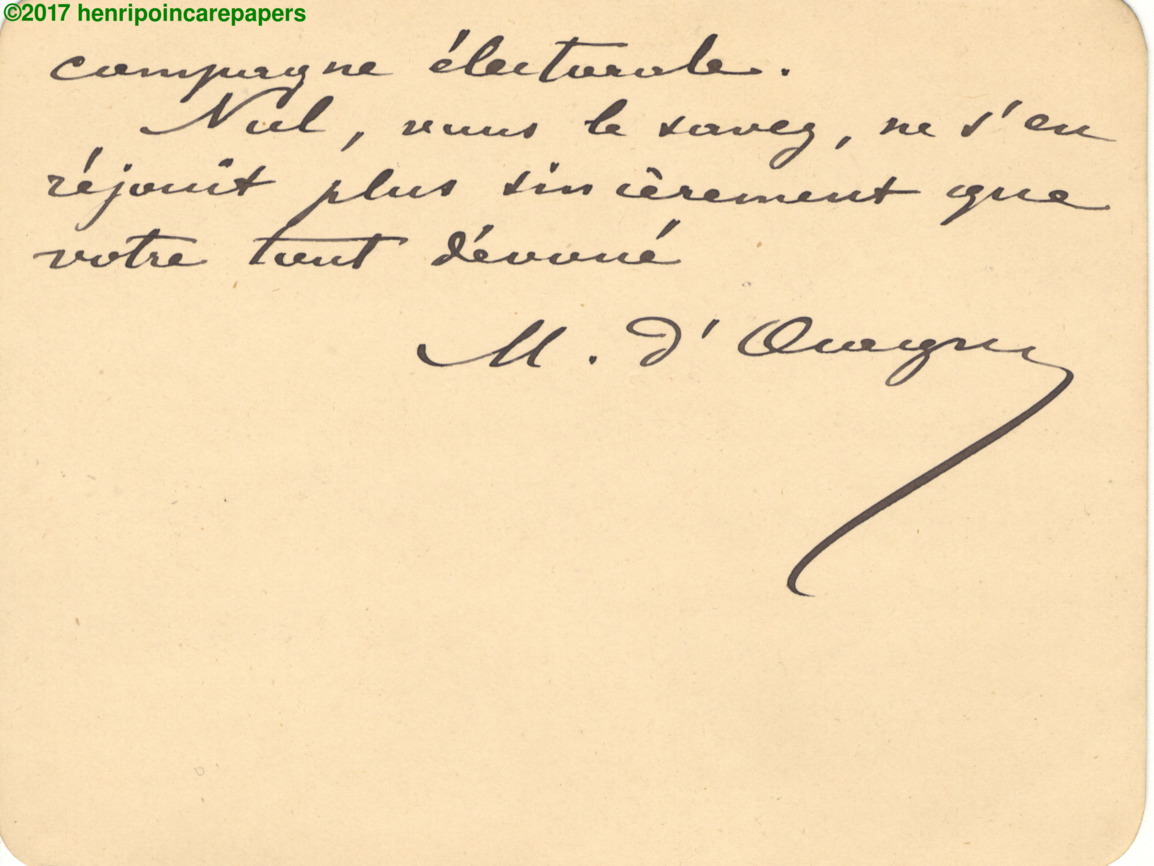 ©2017 henripoincarepapers
campagne électorale.
Nul, vous le savez, ne s'en
réjouit plus sincèrement que
votre tout dévoué
M. d'Ocagne